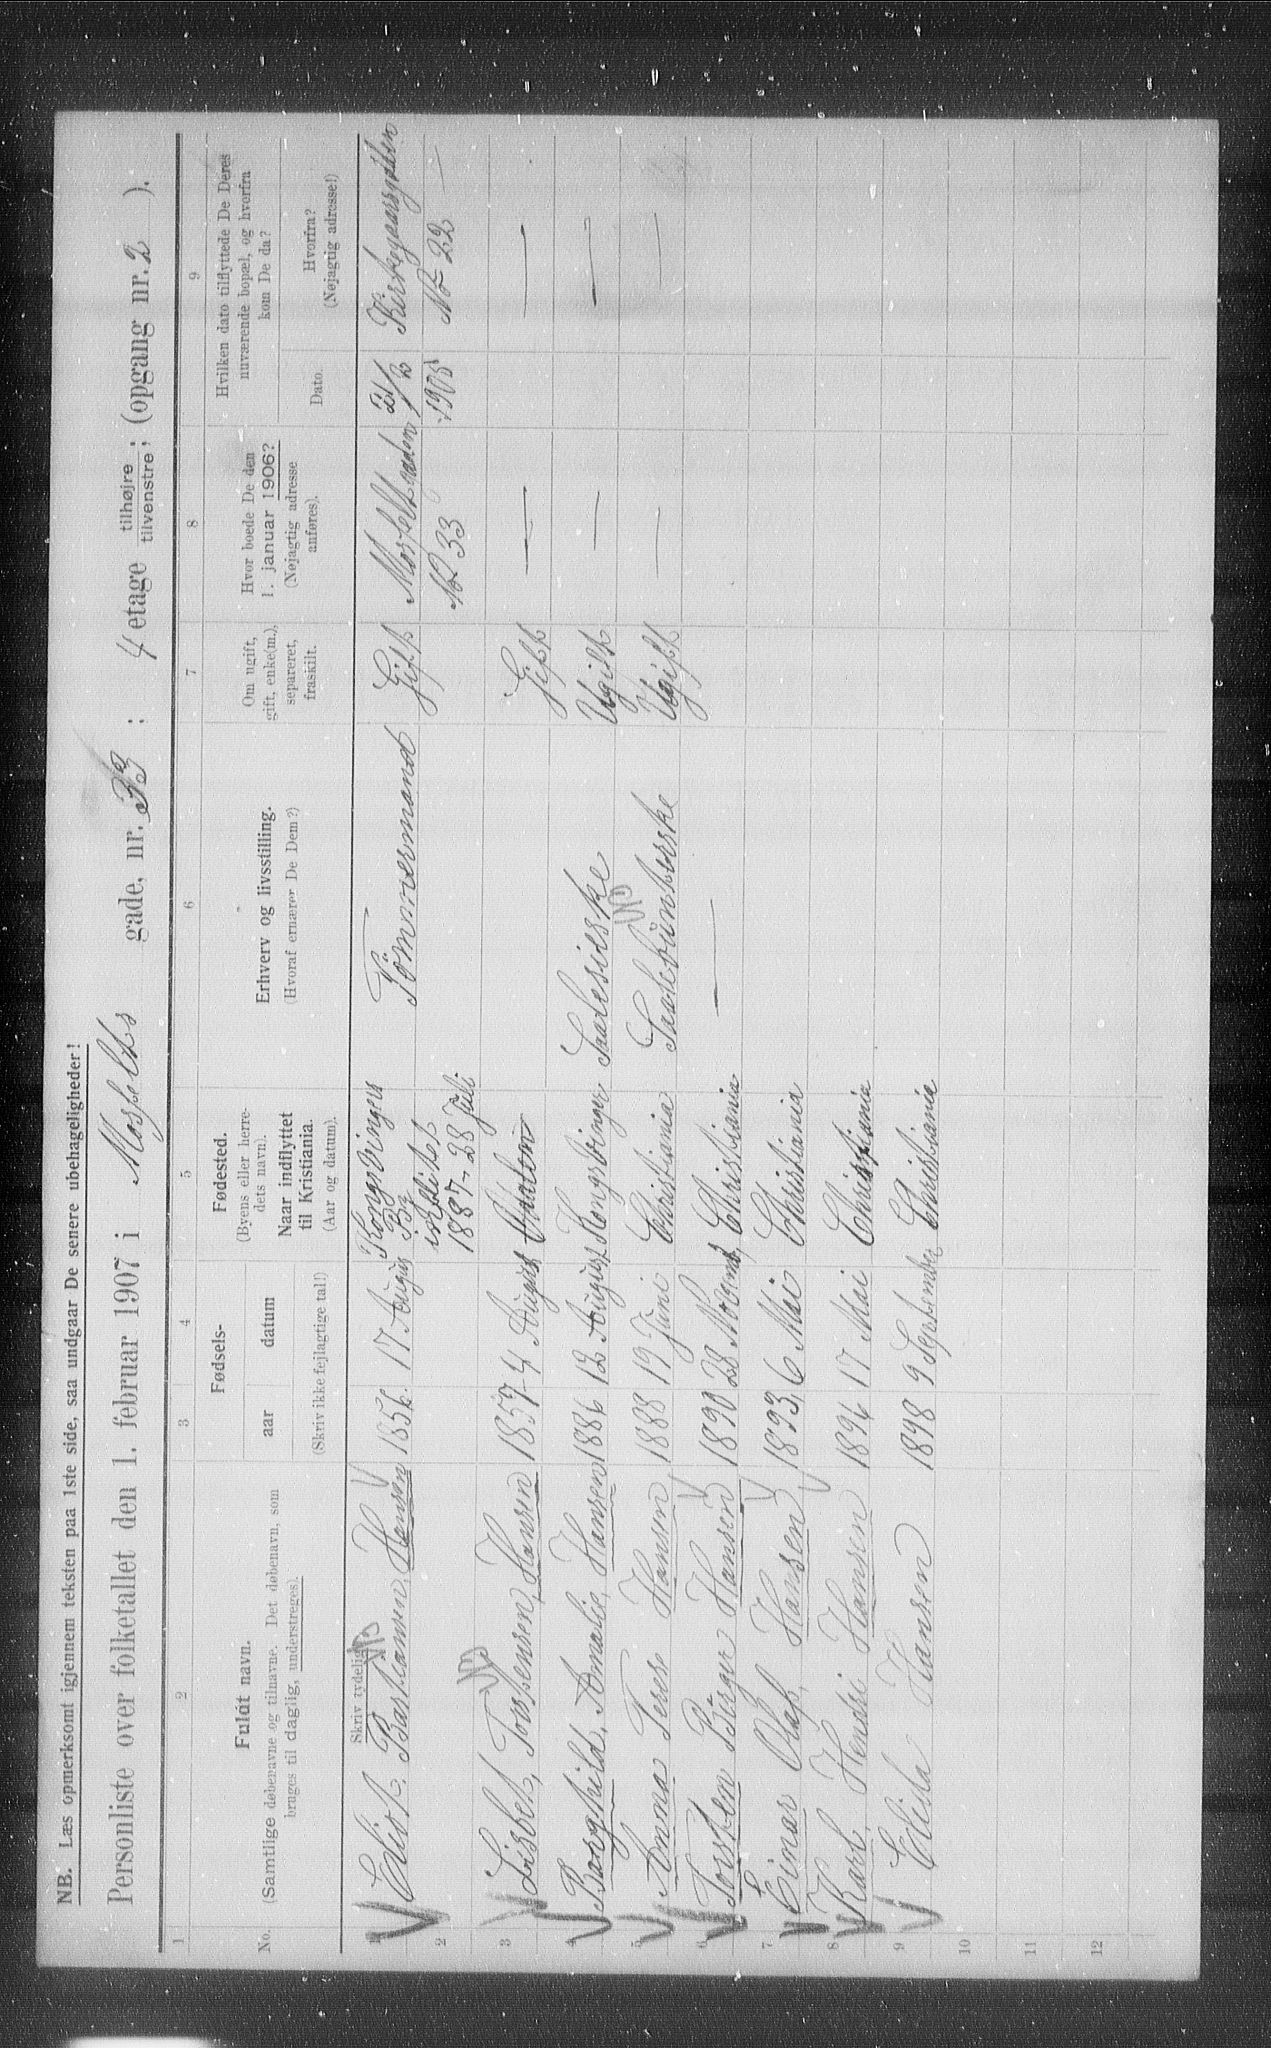 NB. Læs opmerksomt igjennem teksten paa 1ste side, saa undgaar De senere ubehageligheder!
Personliste over folketallet den 1. februar 1907 i Mosfelts gade, nr. 33; 4 etage tilhøjre; tilvenstre; (opgang nr. 2).
1 2 3 4 5 6 7 8 9
No. Fuldt navn. (Samtlige døbenavne og tilnavne. Det døbenavn, som bruges til daglig, understreges). Fødsels- aar datum (Skriv ikke fejlagtige tal!) Fødested. (Byens eller herredets navn). Naar indflyttet til Kristiania. (Aar og datum). Erhverv og livsstilling. (Hvoraf ernærer De Dem?) Om ugift, gift, enke(m.), separeret, fraskilt. Hvor boede De den 1. januar 1906? (Nøjagtig adresse anføres). Hvilken dato tilflyttede De Deres nuværende bopæl, og hvorfra kom De da? Dato. Hvorfra? (Nøjagtig adresse!)
Skriv tydelig!
1 Bastiansen, Hansen 1856 17 August Kongsvinger Tömmermand Gift Mosfeltgaden 1905
2 1887-28 Juli No 33 No 22
3 Lisbet, Torstensen, Hansen 1857 4 August Gift — —
4 Ranghild, Amalie, Hansen 1886 12 August Kongsvinger Ugift — —
5 Anna Terese Hansen 1888 19 Juni Christiania Ugift — —
6 Torsten Birger Hansen 1890 28 Novemb. Christiania —
7 Einar Olaf, Hansen 1893 6 Mai Christiania
8 Karl, Hendri Hansen 1896 17 Mai Christiania
9 Hansen 1898 9 September Christiania
10
11
12